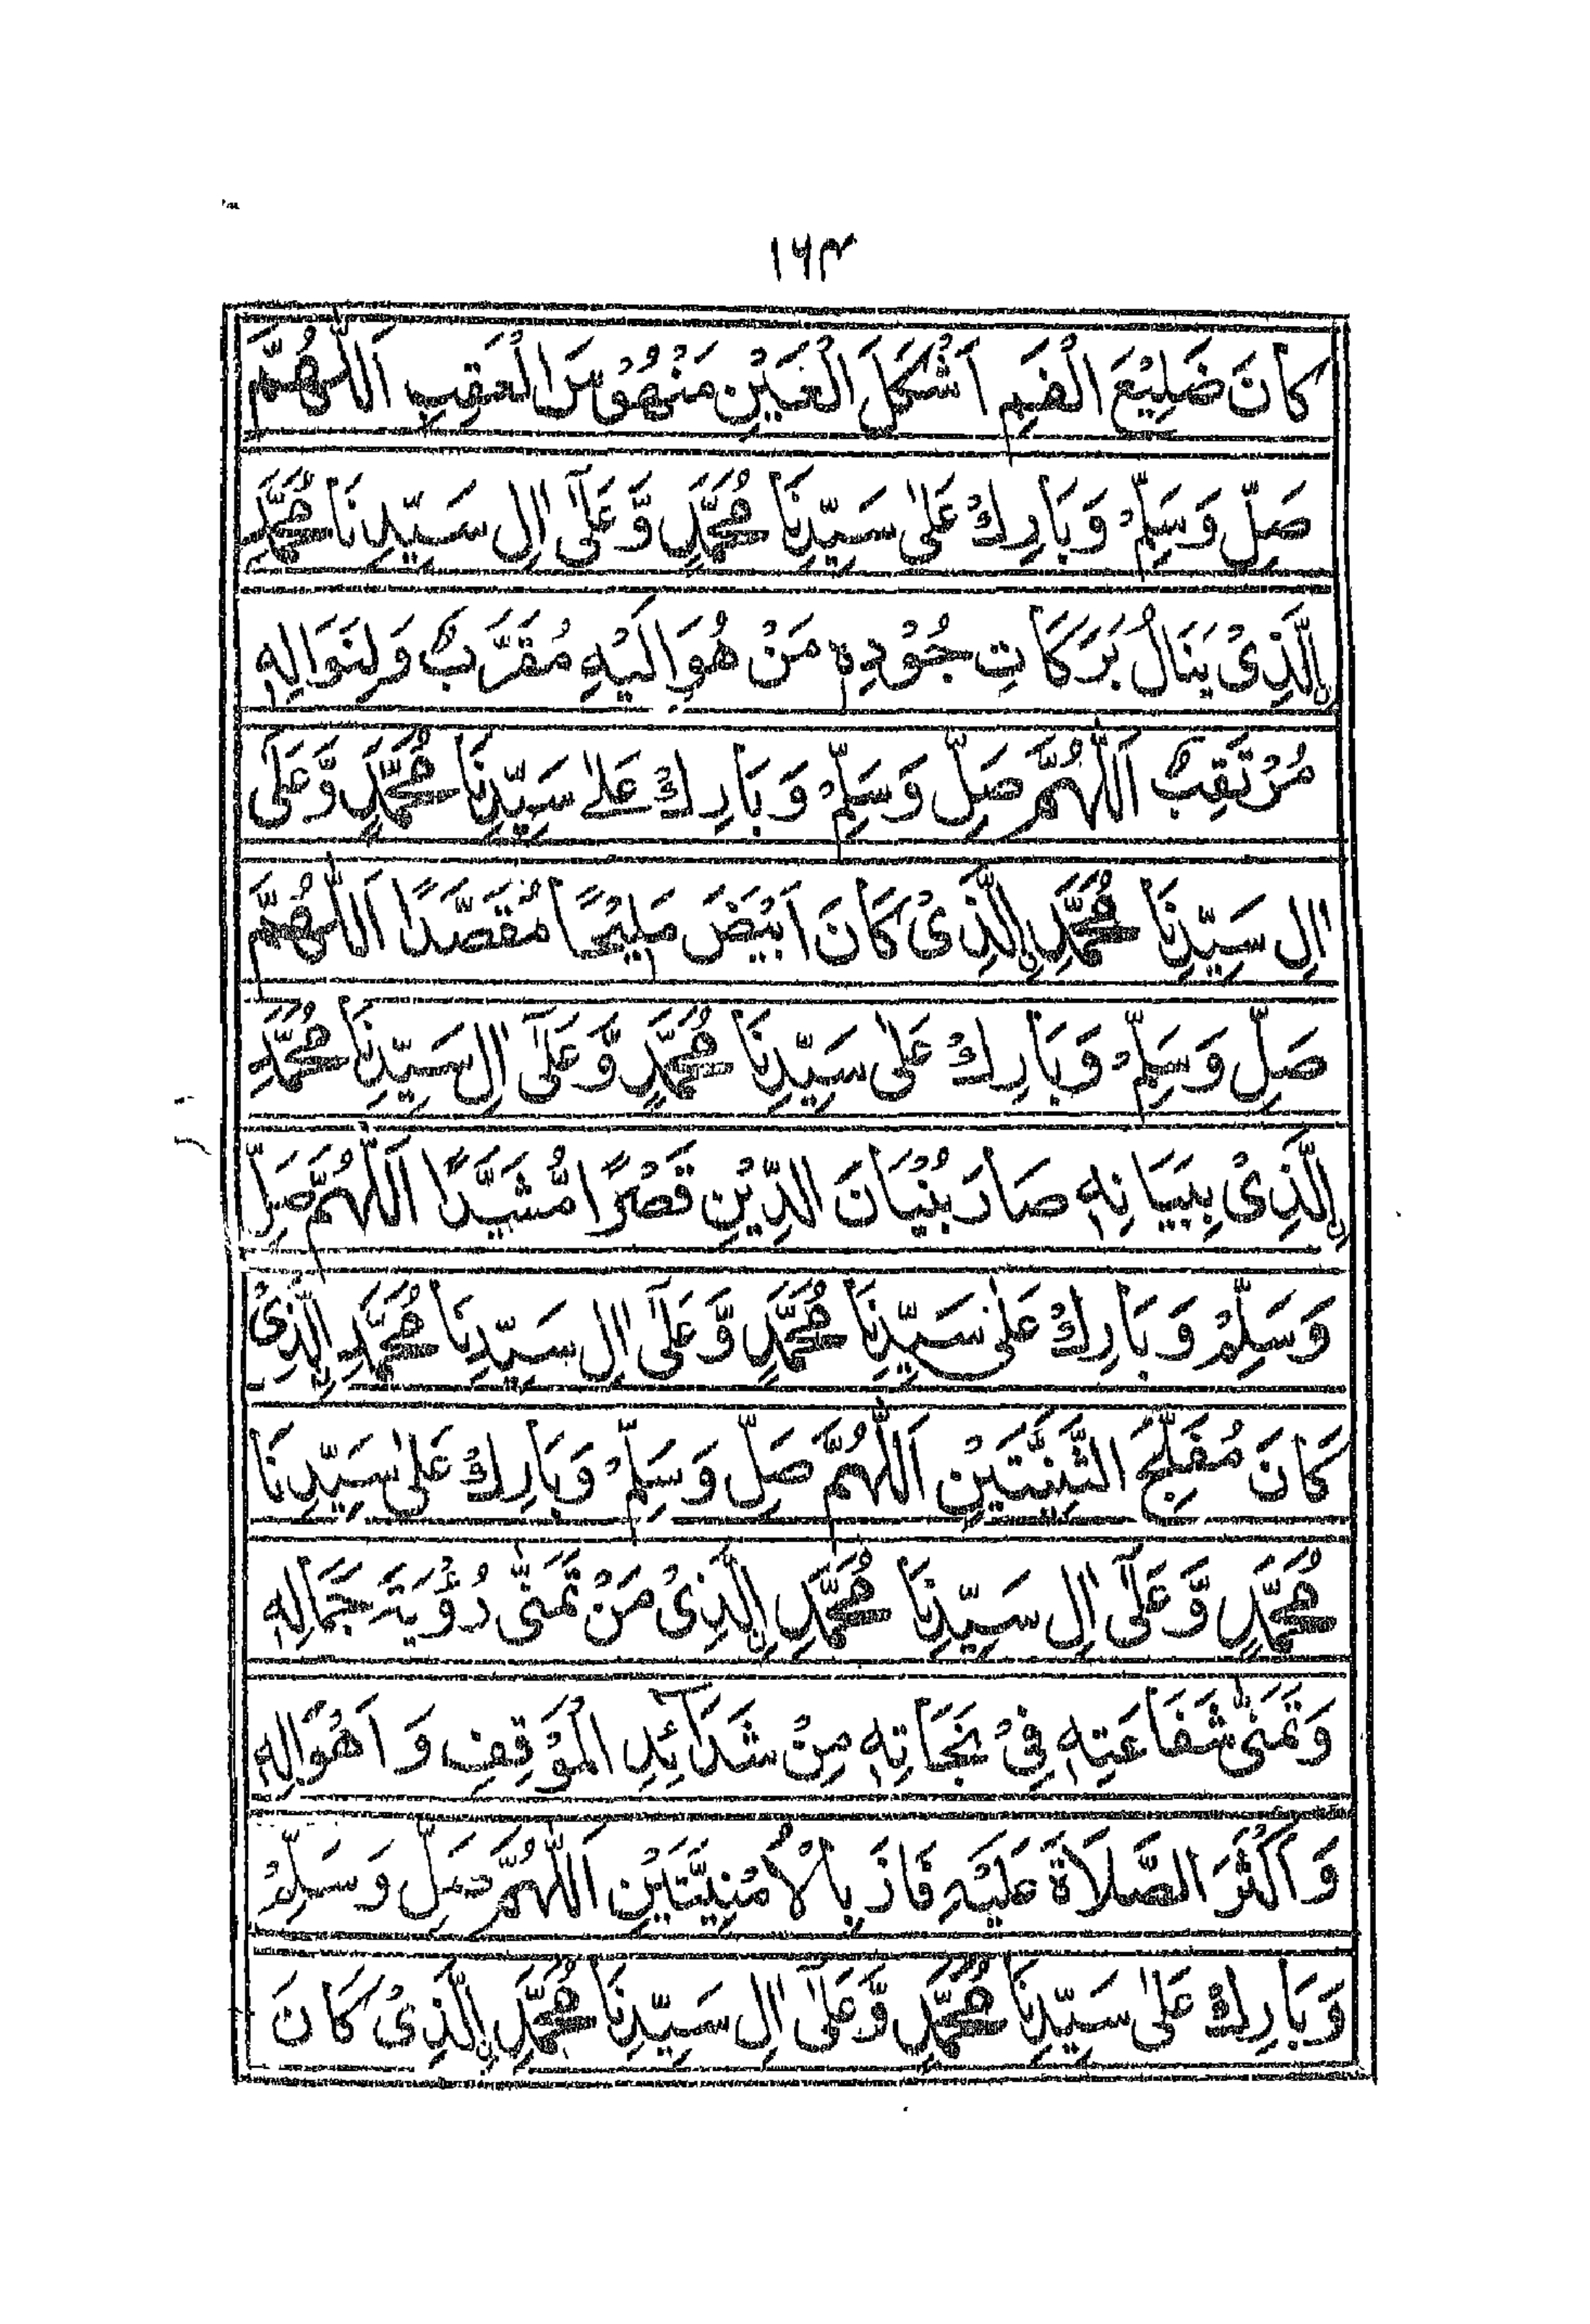 ١٦٣
كَانَ ضَلِيْعَ الْفَمِ اَشْكَلَ الْعَيْنِ مَنْهُوْسَ الْعَقِبِ اَللّٰهُمَّ
صَلِّ وَسَلِّمْ وَبَارِكْ عَلٰى سَيِّدِنَا مُحَمَّدٍ وَّعَلٰٓى اٰلِ سَيِّدِنَا مُحَمَّدِ
نِ الَّذِىْ يَنَالُ بَرَكَاتِ جُوْدِهٖ مَنْ هُوَ اِلَيْهِ مُقَرَّبٌ وَلِنَوَالِهٖ
مُرْتَقِبٌ اَللّٰهُمَّ صَلِّ وَسَلِّمْ وَبَارِكْ عَلٰى سَيِّدِنَا مُحَمَّدٍ وَّعَلٰٓى
اٰلِ سَيِّدِنَا مُحَمَّدِ نِ الَّذِىْ كَانَ اَبْيَضَ مَلِيْحًا مُقَصَّدًا اَللّٰهُمَّ
صَلِّ وَسَلِّمْ وَبَارِكْ عَلٰى سَيِّدِنَا مُحَمَّدٍ وَّعَلٰٓى اٰلِ سَيِّدِنَا مُحَمَّدِ
نِ الَّذِىْ بِبَيَانِهٖ صَارَ بُنْيَانَ الدِّيْنِ قَصْرًا مُّشَيَّدًا اَللّٰهُمَّ صَلِّ
وَسَلِّمْ وَبَارِكْ عَلٰى سَيِّدِنَا مُحَمَّدٍ وَّعَلٰٓى اٰلِ سَيِّدِنَا مُحَمَّدِ نِ الَّذِىْ
كَانَ مُفَلَّجَ الثَّنِيَّتَيْنِ اَللّٰهُمَّ صَلِّ وَسَلِّمْ وَبَارِكْ عَلٰى سَيِّدِنَا
مُحَمَّدٍ وَّعَلٰٓى اٰلِ سَيِّدِنَا مُحَمَّدِ نِ الَّذِىْ مَنْ تَمَنّٰى رُؤْيَةَ جَمَالِهٖ
وَتَمَنّٰى شَفَاعَتِهٖ فِىْ نَجَاتِهٖ مِنْ شَدَآئِدِ الْمَوْقِفِ وَاَهْوَالِهٖ
وَاَكْثَرَ الصَّلَاةَ عَلَيْهِ فَازَ بِالْاُمْنِيَّتَيْنِ اَللّٰهُمَّ صَلِّ وَسَلِّمْ
وَبَارِكْ عَلٰى سَيِّدِنَا مُحَمَّدٍ وَّعَلٰٓى اٰلِ سَيِّدِنَا مُحَمَّدِ نِ الَّذِىْ كَانَ